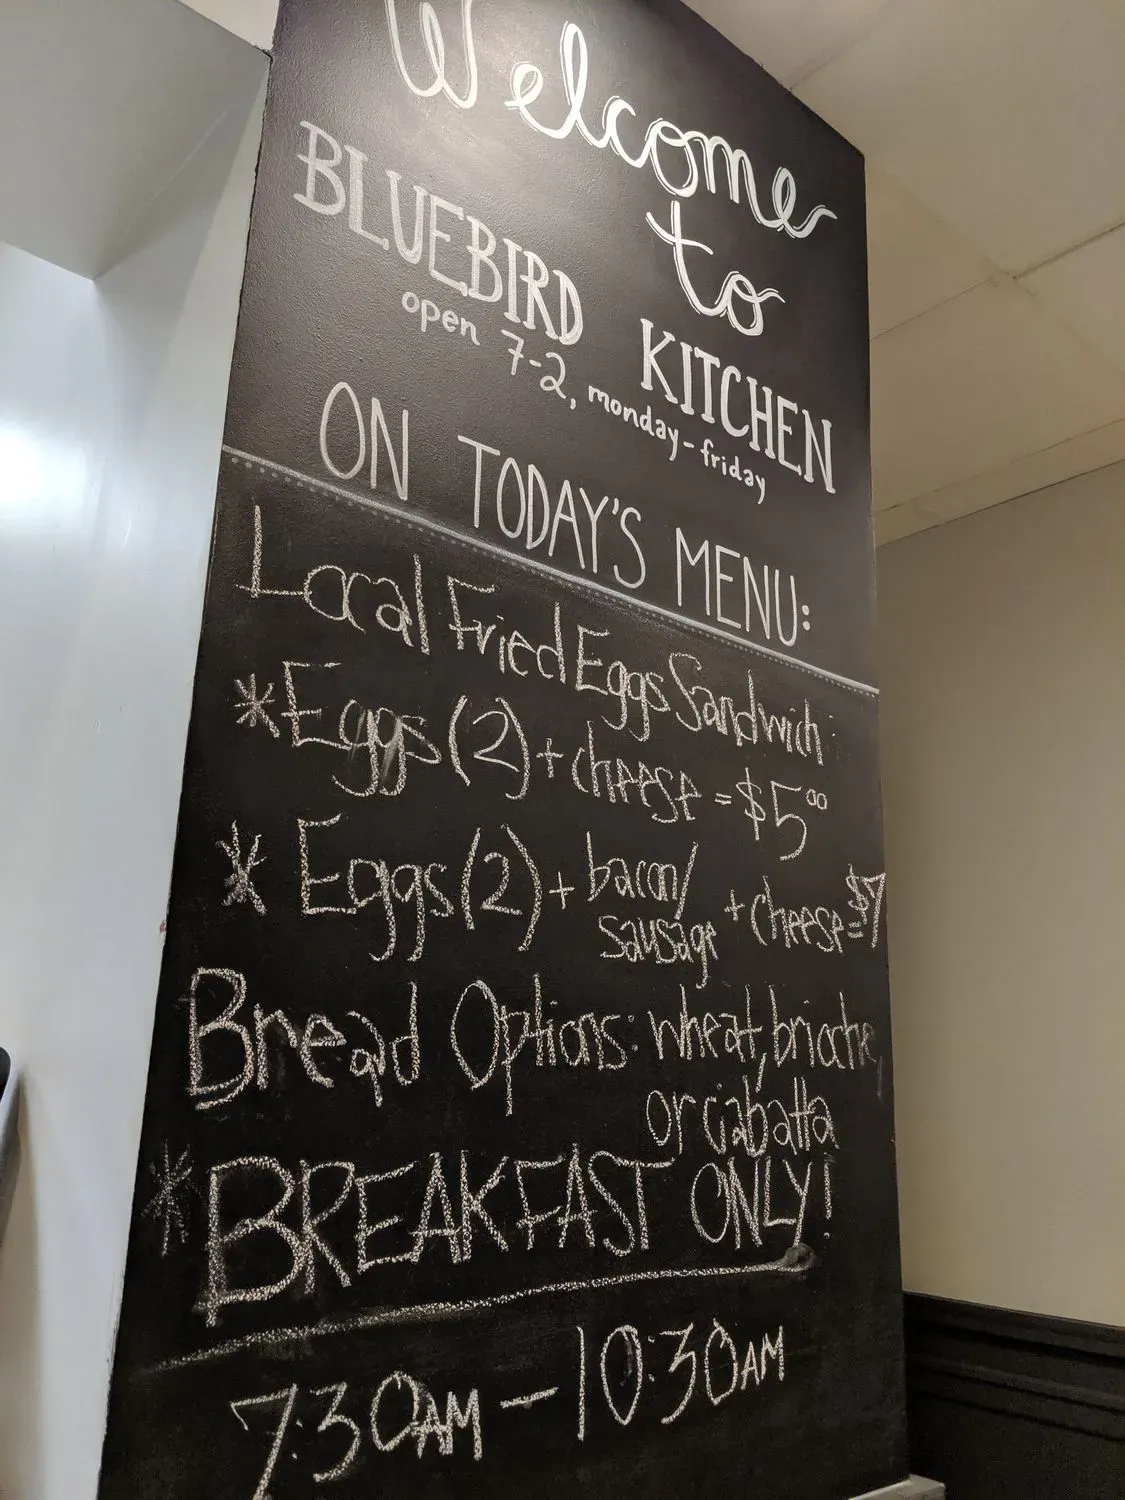 Welcome
to
BLUEBIRD KITCHEN
open 7-2, monday-friday
ON TODAY'S MENU:
Local Fried Eggs Sandwich:
*Eggs (2) + cheese = $5.00
* Eggs (2) + bacon/ sausage + cheese = $7
Bread Options: wheat, brioche,
or ciabatta
*BREAKFAST ONLY!
7:30AM - 10:30AM